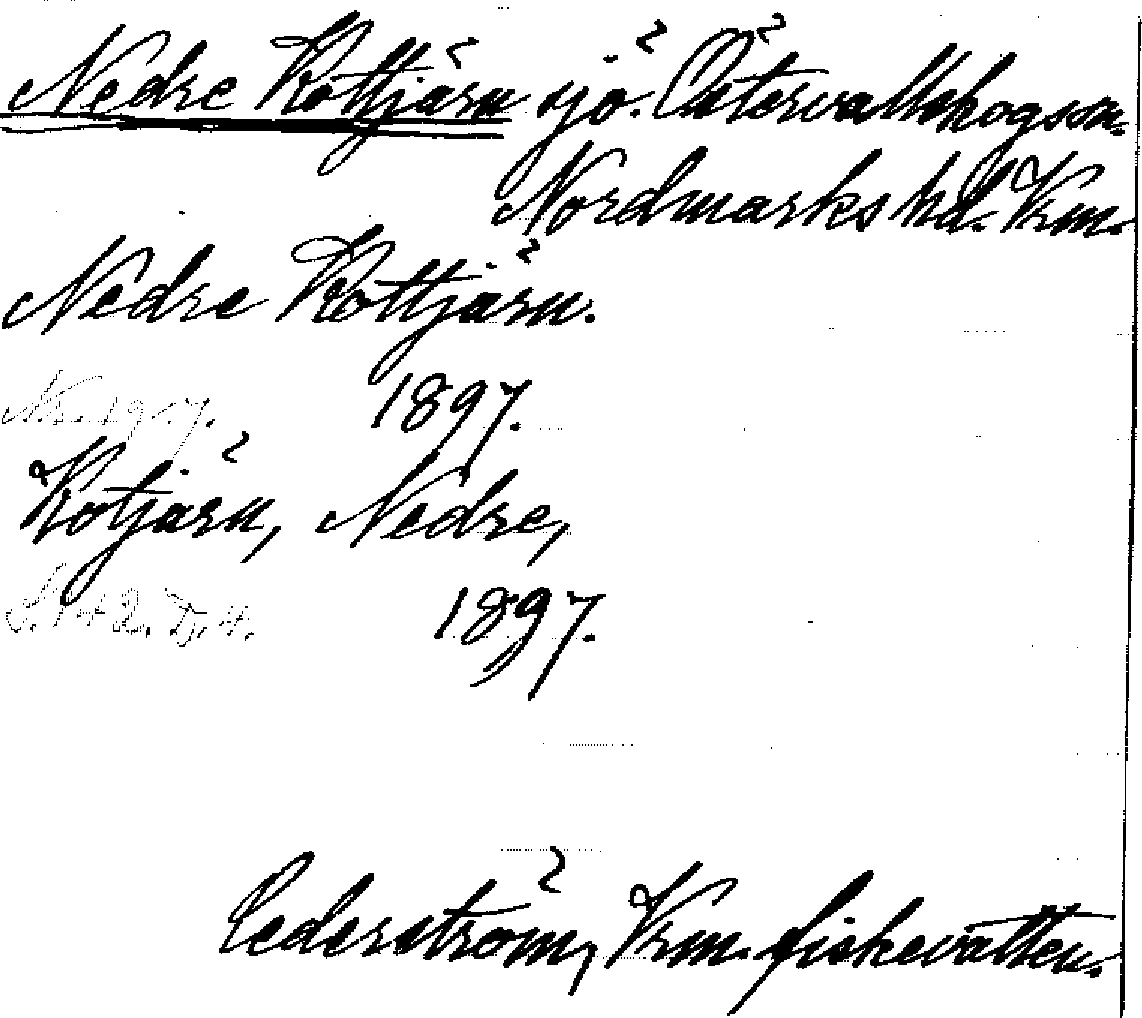 Nedre Kottjärn sjö. Östervallskogs sn.
Nordmarks hd. Vrm.
Nedre Kottjärn.
Nr. 1917. 1897.
Kotjärn, Nedre,
S. 142. T. 4. 1897.
Cederström, Vrm. fiskevatten.